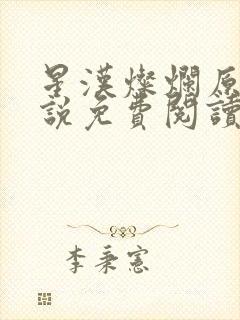 星漢燦爛原
說免費閱讀
李秉憲